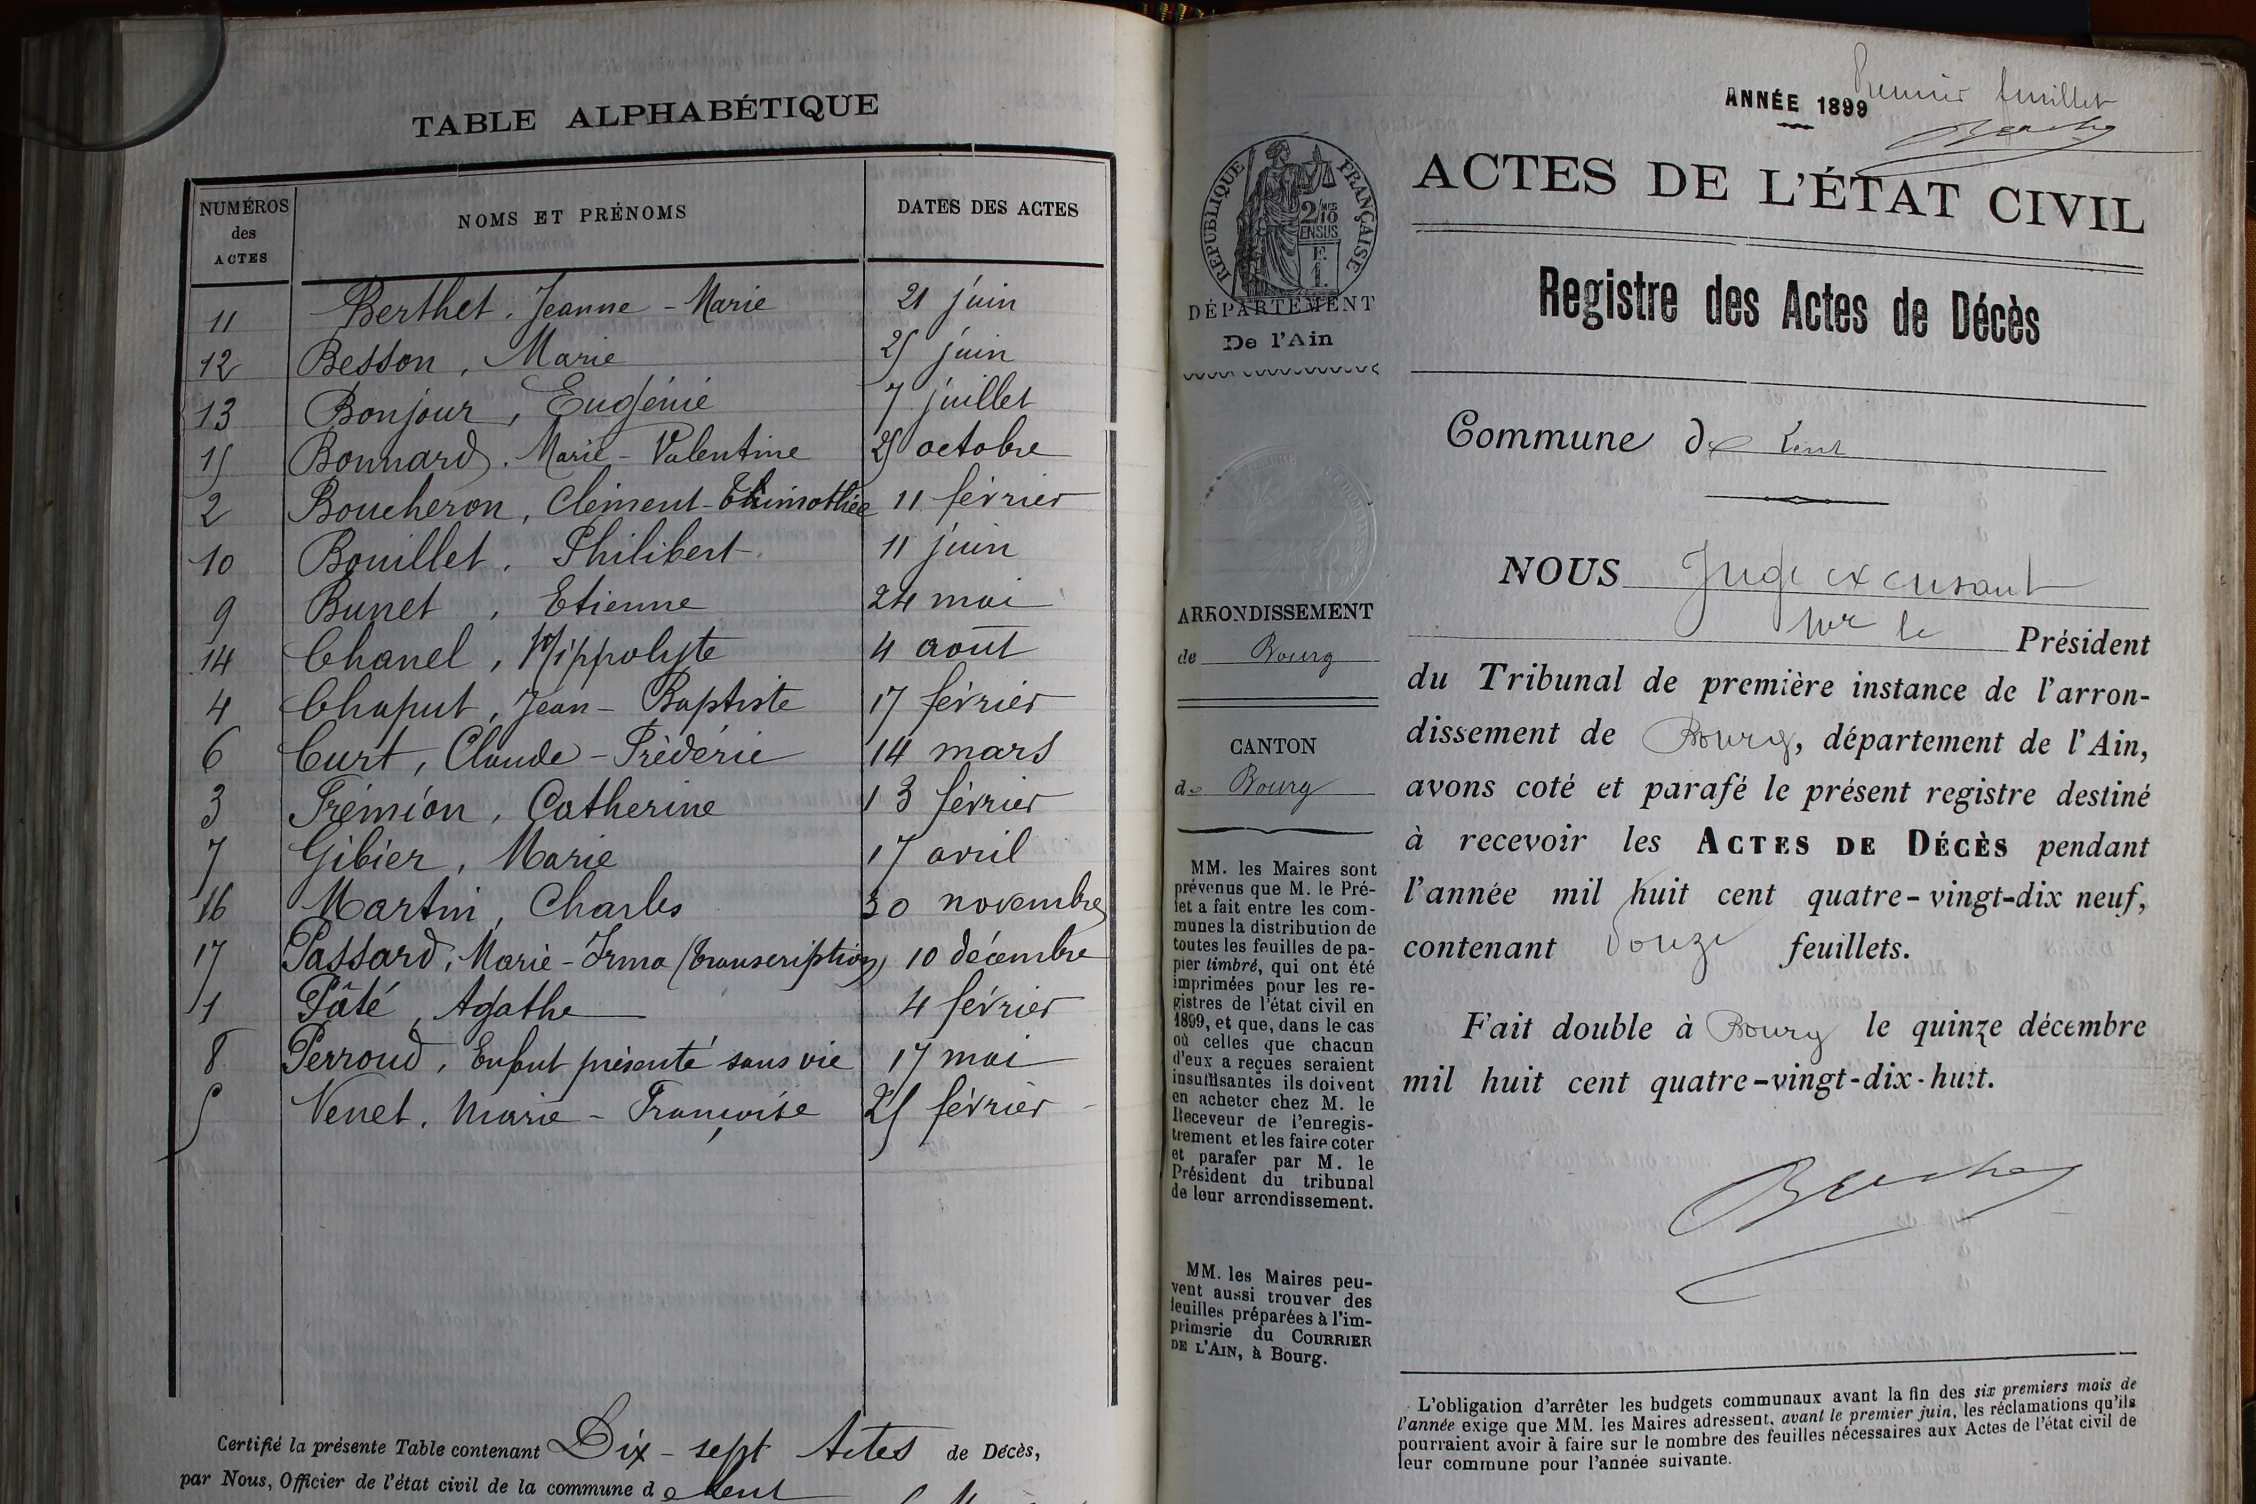 TABLE ALPHABÉTIQUE
NUMÉROS des ACTES NOMS ET PRÉNOMS DATES DES ACTES
11 Berthet, Jeanne-Marie 21 juin
12 Besson, Marie 25 juin
13 Bonjour, Eugénie 7 juillet
15 Bonnard, Marie-Valentine 25 octobre
2 Boucheron, Clément-Thimothée 11 février
10 Bouillet, Philibert 11 juin
9 Bunet, Etienne 24 mai
14 Chanel, Hippolyte 4 août
4 Chaput, Jean-Baptiste 17 février
6 Curt, Claude-Frédéric 14 mars
3 Frémion, Catherine 13 février
7 Gibier, Marie 17 avril
16 Martin, Charles 30 novembre
17 Passard, Marie-Irma (transcription) 10 décembre
1 Pâté, Agathe 4 février
8 Perroud, Enfant présenté sans vie 17 mai
5 Venet, Marie-Françoise 25 février
Certifié la présente Table contenant Dix-sept Actes de Décès,
par Nous, Officier de l'état civil de la commune de Lent
Premier feuillet
ANNÉE 1899
RÉPUBLIQUE FRANÇAISE
2/10 EN SUS
F. 1.
DÉPARTEMENT
De l'Ain
ARRONDISSEMENT
de Bourg
CANTON
de Bourg
MM. les Maires sont
prévenus que M. le Pré-
fet a fait entre les com-
munes la distribution de
toutes les feuilles de pa-
pier timbré, qui ont été
imprimées pour les re-
gistres de l'état civil en
1899, et que, dans le cas
où celles que chacun
d'eux a reçues seraient
insuffisantes ils doivent
en acheter chez M. le
Receveur de l'enregis-
trement et les faire coter
et parafer par M. le
Président du tribunal
de leur arrondissement.
MM. les Maires peu-
vent aussi trouver des
feuilles préparées à l'im-
primerie du COURRIER
DE L'AIN, à Bourg.
ACTES DE L'ÉTAT CIVIL
Registre des Actes de Décès
Commune de Lent
NOUS Juge excusant
pour le Président
du Tribunal de première instance de l'arron-
dissement de Bourg, département de l'Ain,
avons coté et parafé le présent registre destiné
à recevoir les ACTES DE DÉCÈS pendant
l'année mil huit cent quatre-vingt-dix neuf,
contenant douze feuillets.
Fait double à Bourg le quinze décembre
mil huit cent quatre-vingt-dix-huit.
L'obligation d'arrêter les budgets communaux avant la fin des six premiers mois de
l'année exige que MM. les Maires adressent, avant le premier juin, les réclamations qu'ils
pourraient avoir à faire sur le nombre des feuilles nécessaires aux Actes de l'état civil de
leur commune pour l'année suivante.